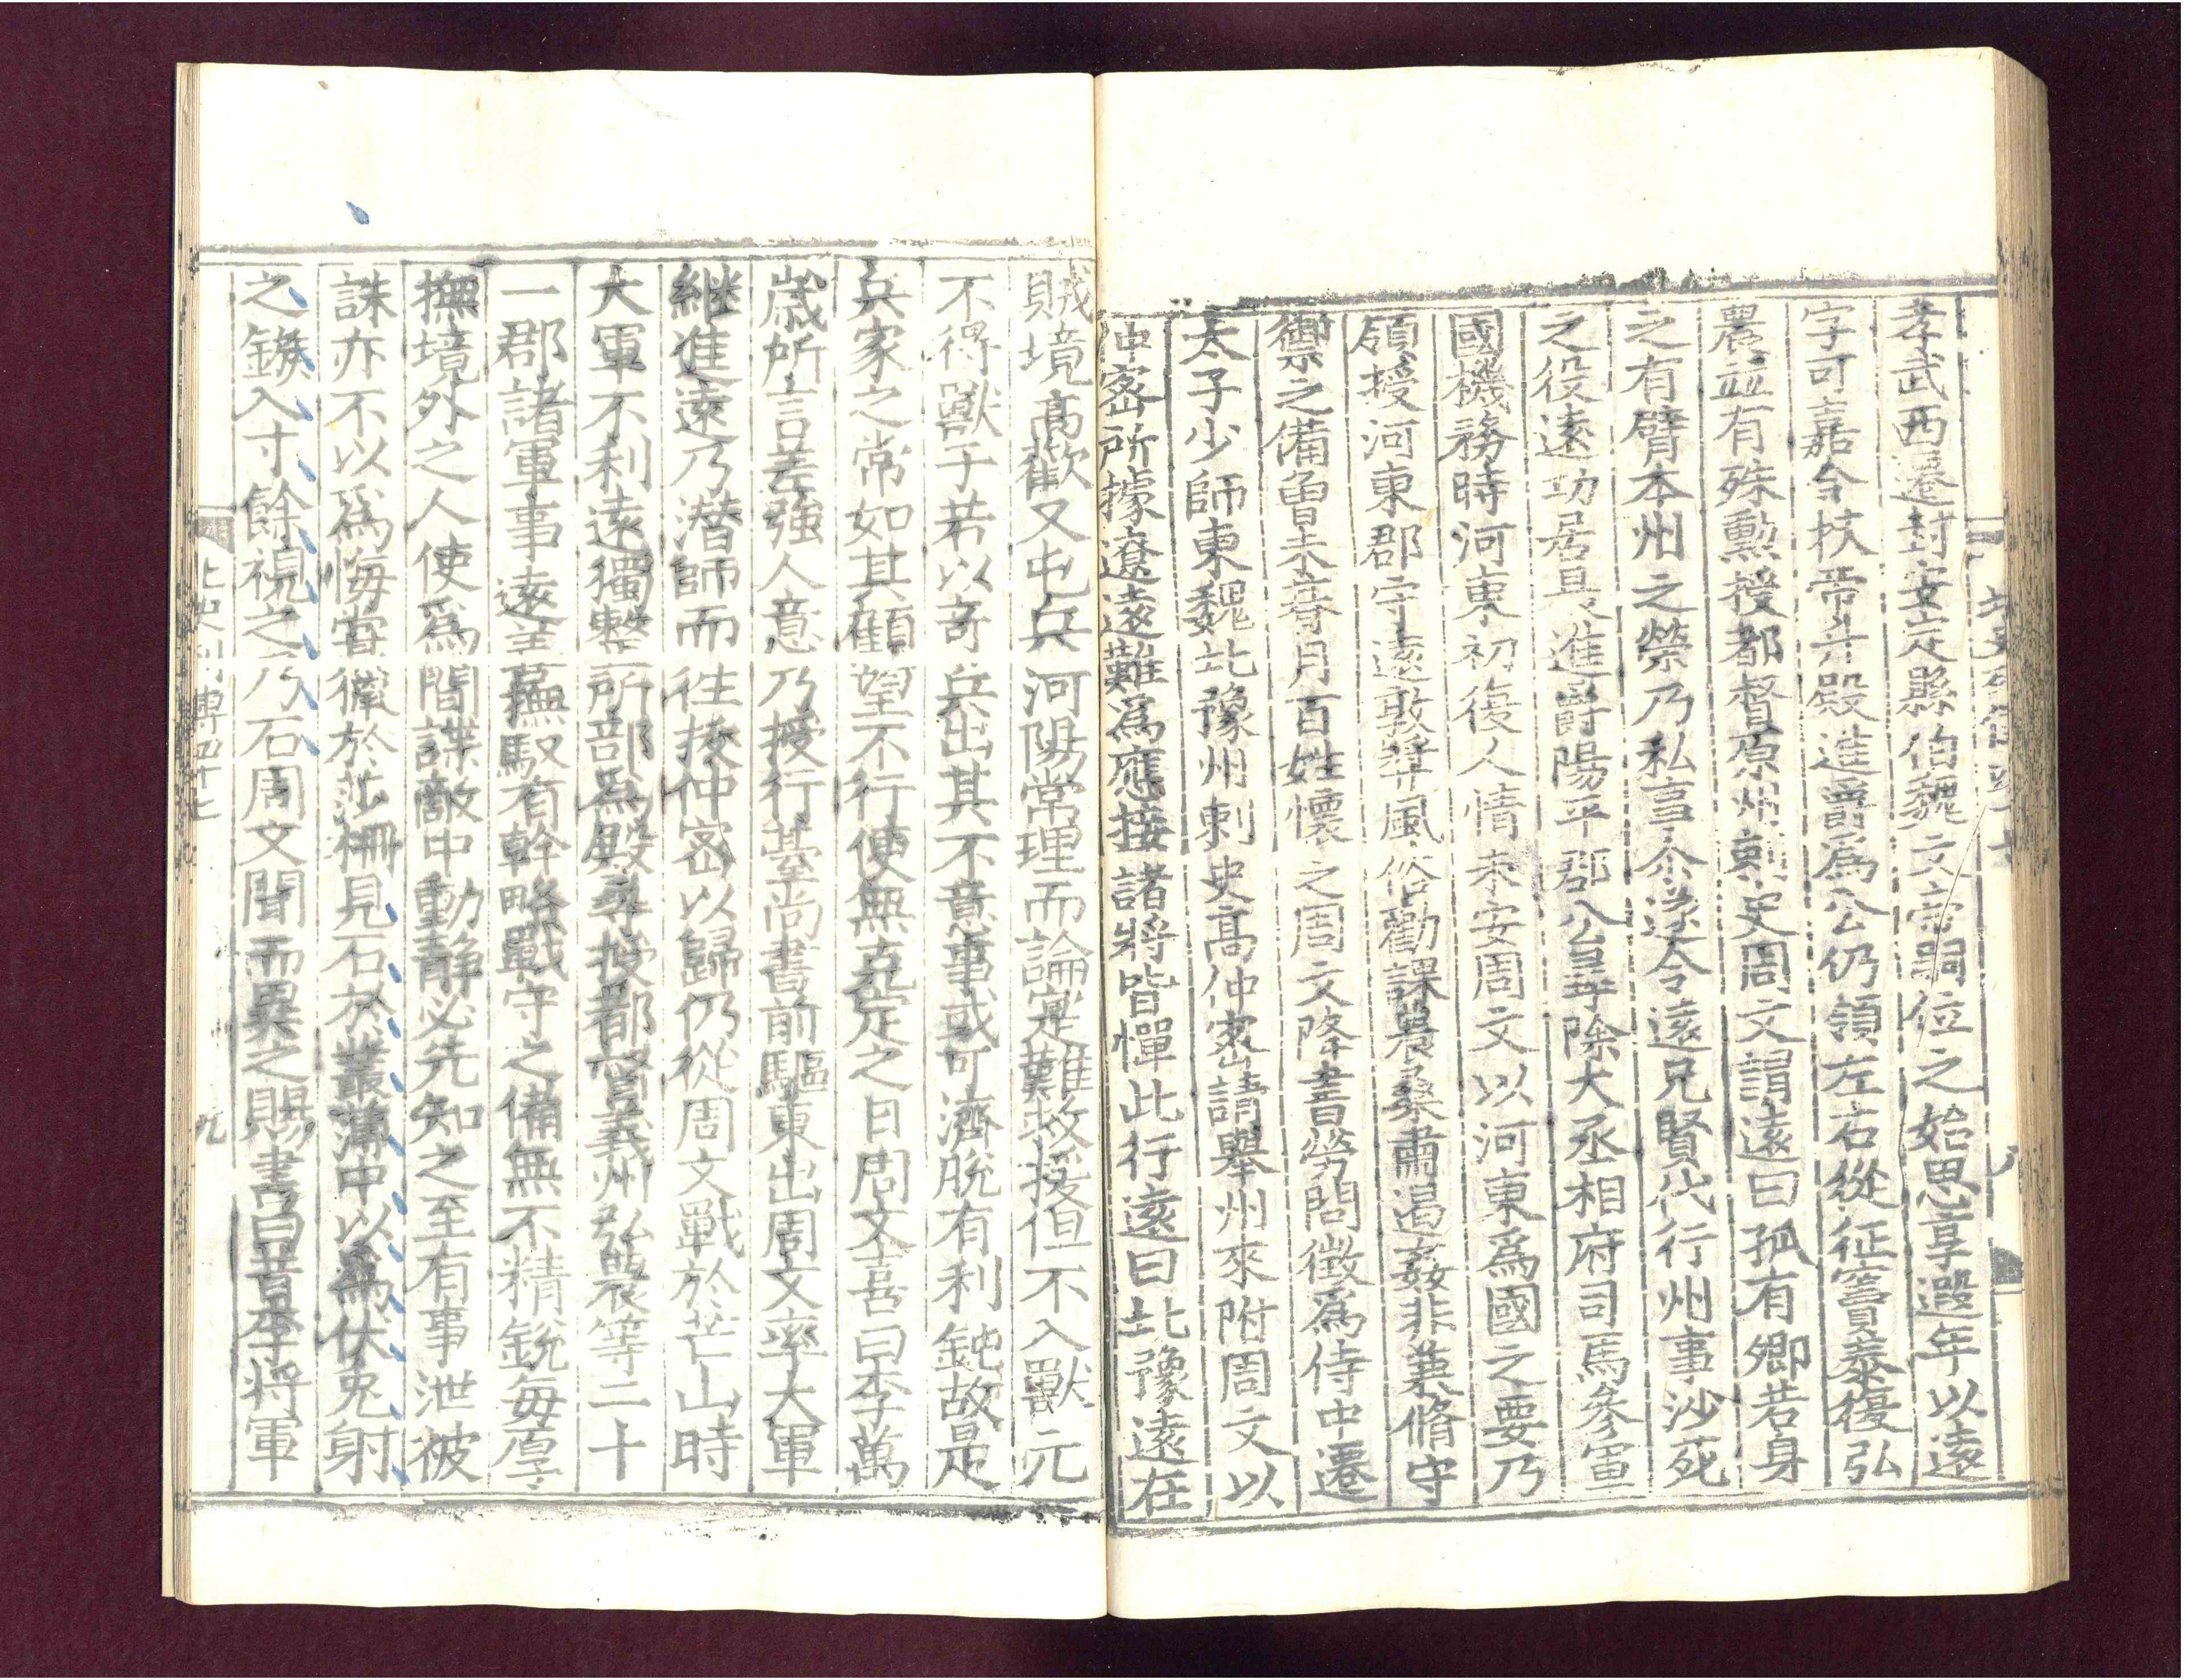 孝武西遷封安定縣伯魏文帝嗣位之始思享遐年以遠
字可嘉令扶帝升殿進爵爲公仍領左右從征竇泰復弘
農並有殊勲授都督原州刺史周文謂遠曰孤有卿若身
之有臂本州之榮乃私事尒遂令遠兄賢代行州事沙苑
之役遠功居最進爵陽平郡公尋除大丞相府司馬參軍
國機務時河東初復人情未安周文以河東爲國之要乃
領授河東郡守遠敦奬風俗勸課農桑肅遏姦非兼脩守
禦之備曾未朞月百姓懷之周文降書勞問徵爲侍中遷
太子少師東魏北豫州刺史高仲宻請舉州來附周文以
仲宻所據遼遠難爲應接諸將皆憚此行遠曰北豫遠在
賊境高歡又屯兵河陽常理而論寔難救援但不入獸穴
不得獸子若以奇兵出其不意事或可濟脫有利鈍故是
兵家之常如其顧望不行便無克定之日周文喜曰李萬
歳所言差強人意乃授行臺尚書前驅東出周文率大軍
継進遠乃潜師而往接仲宻以歸仍從周文戰於芒山時
大軍不利遠獨整所部爲殿尋授都督義州弘農等二十
一郡諸軍事遠善撫馭有幹略戰守之備無不精鋭每厚
撫境外之人使爲間諜敵中動静必先知之至有事泄被
誅亦不以爲悔甞獵於莎柵見石於叢薄中以爲伏兎射
之鏃入寸餘視之乃石周文聞而異之賜書曰昔李將軍
北史列傳四十七
九